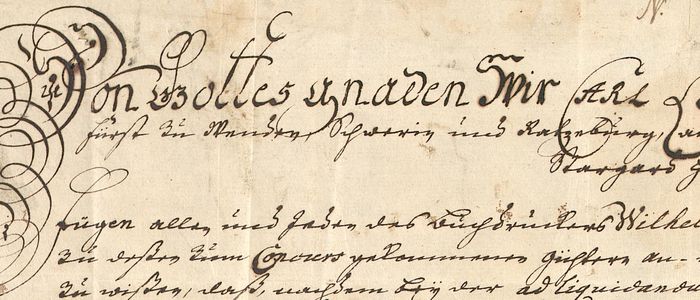 N.
Von Gottes gnaden Wir Carl
Fürst zu Wenden, Schwerin und Ratzeburg,
Stargard
Fügen allen und Jeden des Buchdruckers Wilhel
zu deßen zum Concurs gekommenen Güthern an-
zu wißen, daß, nachdem bey der ad liquidand